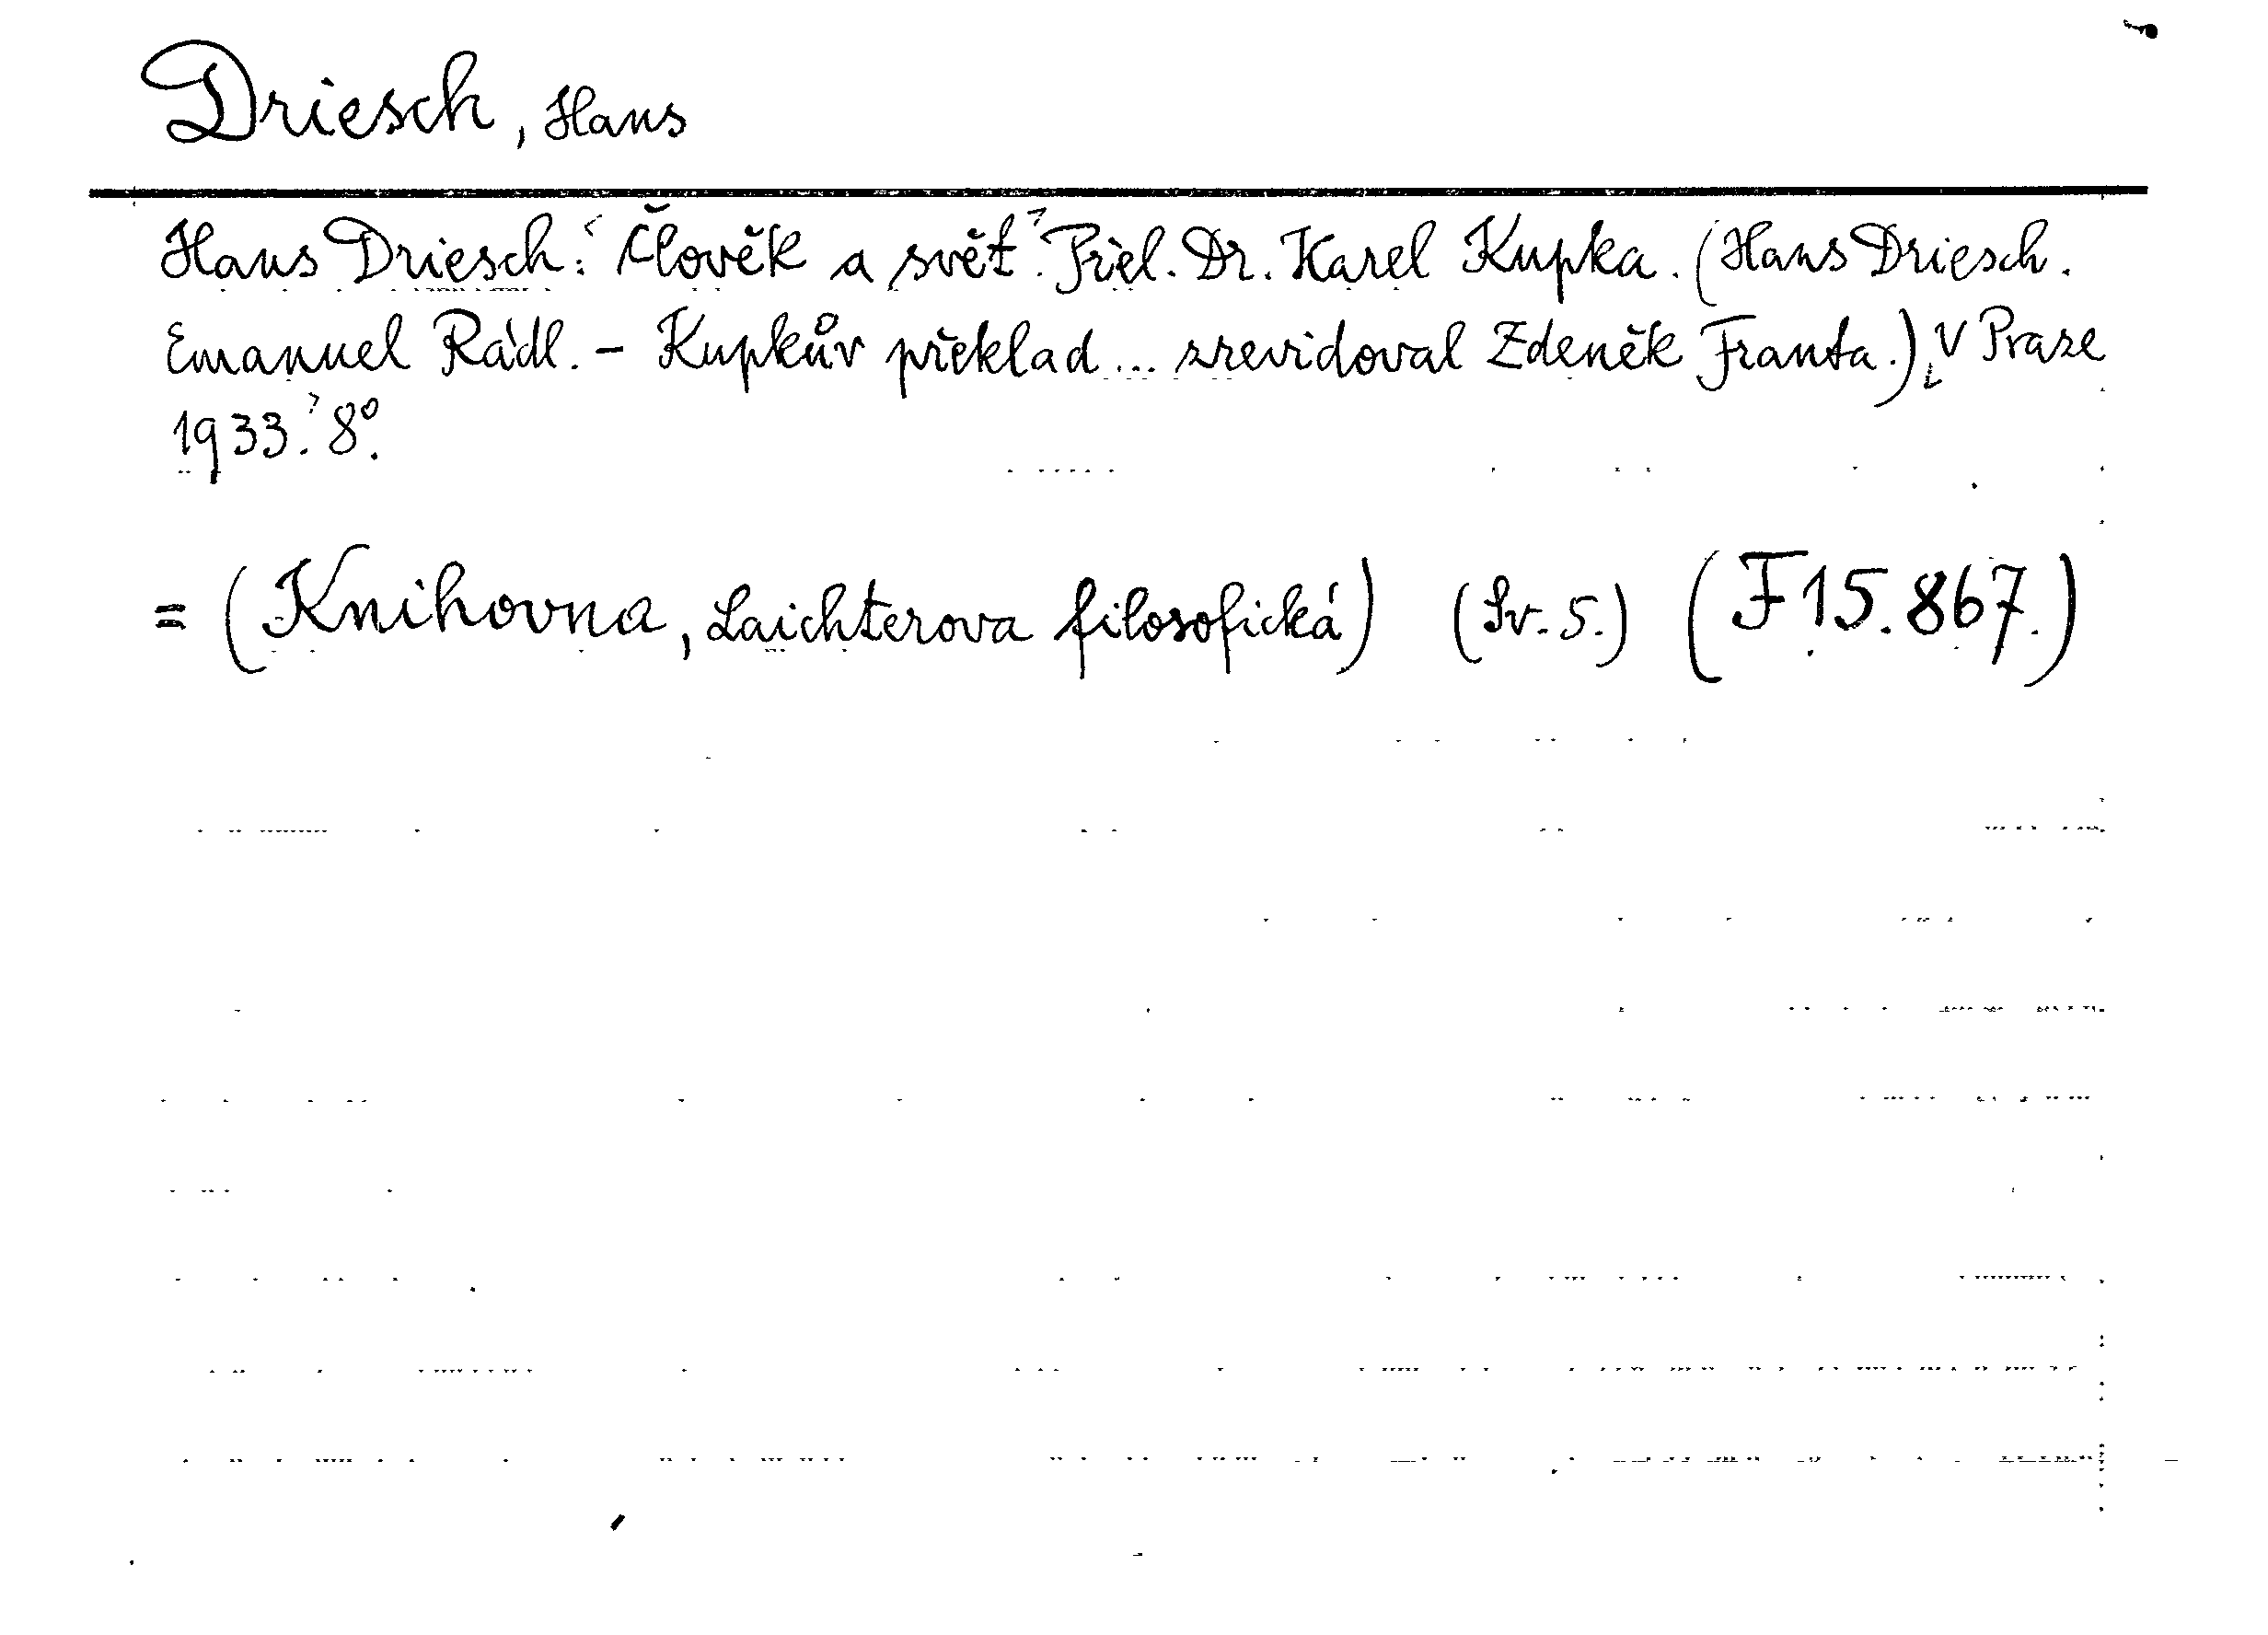 Driesch, Hans
Hans Driesch: Člověk a svět. Přel. Dr. Karel Kupka. (Hans Driesch.
Emanuel Rádl. – Kupkův překlad ... zrevidoval Zdeněk Franta.) V Praze
1933. 8º.
= (Knihovna, Laichterova filosofická) (Sv. 5.) (F 15.867.)